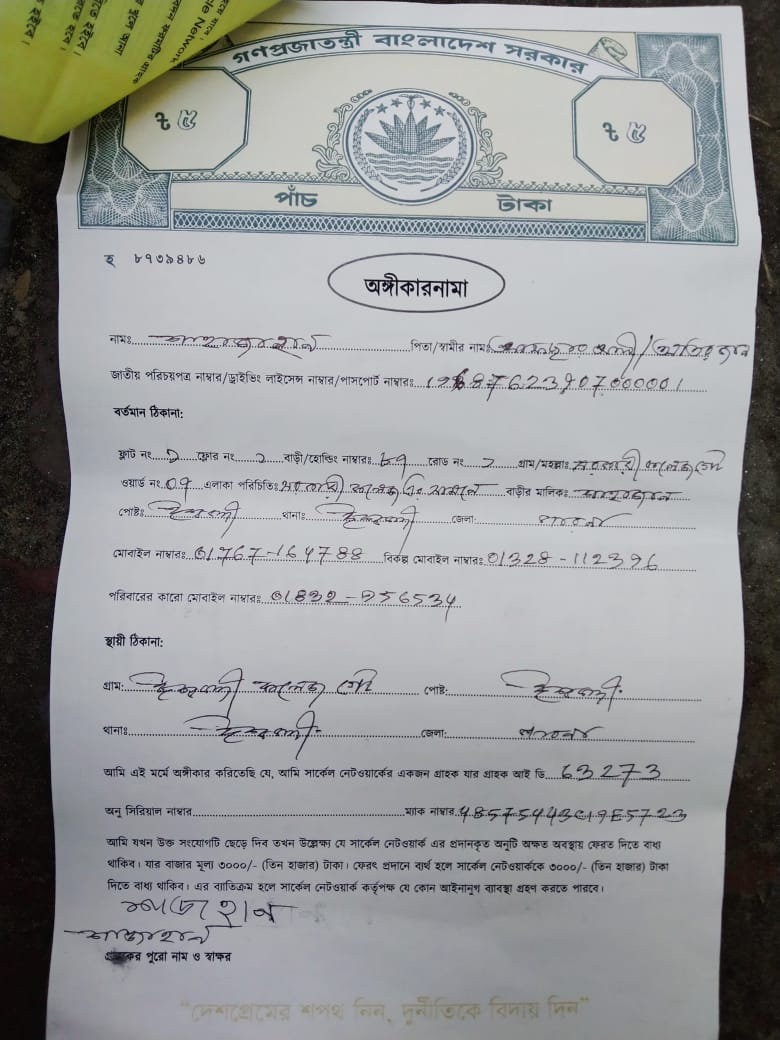 গণপ্রজাতন্ত্রী বাংলাদেশ সরকার
৳ ৫
৳ ৫
পাঁচ টাকা
হ ৮৭৩৯৪৮৬
অঙ্গীকারনামা
নামঃ শাহজাহান পিতা/স্বামীর নামঃ
জাতীয় পরিচয়পত্র নাম্বার/ড্রাইভিং লাইসেন্স নাম্বার/পাসপোর্ট নাম্বারঃ
বর্তমান ঠিকানা:
ফ্লাট নং ফ্লোর নং বাড়ী/হোল্ডিং নাম্বারঃ রোড নং গ্রাম/মহল্লাঃ সরকারী কলেজ
ওয়ার্ড নং 07 এলাকা পরিচিতিঃ সরকারী কলেজ এর সামনে বাড়ীর মালিকঃ শাহজাহান
পোষ্টঃ ঈশ্বরদী থানাঃ ঈশ্বরদী জেলা: পাবনা
মোবাইল নাম্বারঃ 01767-164788 বিকল্প মোবাইল নাম্বারঃ 01328-112396
পরিবারের কারো মোবাইল নাম্বারঃ
স্থায়ী ঠিকানা:
গ্রাম: ঈশ্বরদী কলেজ পোষ্ট: ঈশ্বরদী
থানাঃ ঈশ্বরদী জেলা: পাবনা
আমি এই মর্মে অঙ্গীকার করিতেছি যে, আমি সার্কেল নেটওয়ার্কের একজন গ্রাহক যার গ্রাহক আই ডি 63273
অনু সিরিয়াল নাম্বার ম্যাক নাম্বার 48575443C19E5723
আমি যখন উক্ত সংযোগটি ছেড়ে দিব তখন উল্লেক্ষ্য যে সার্কেল নেটওয়ার্ক এর প্রদানকৃত অনুটি অক্ষত অবস্থায় ফেরত দিতে বাধ্য
থাকিব। যার বাজার মূল্য ৩০০০/- (তিন হাজার) টাকা। ফেরৎ প্রদানে ব্যর্থ হলে সার্কেল নেটওয়ার্ককে ৩০০০/- (তিন হাজার) টাকা
দিতে বাধ্য থাকিব। এর ব্যাতিক্রম হলে সার্কেল নেটওয়ার্ক কর্তৃপক্ষ যে কোন আইনানুগ ব্যাবস্থা গ্রহণ করতে পারবে।
শাজাহান
শাজাহান
গ্রাহকের পুরো নাম ও স্বাক্ষর
"দেশপ্রেমের শপথ নিন, দুর্নীতিকে বিদায় দিন"